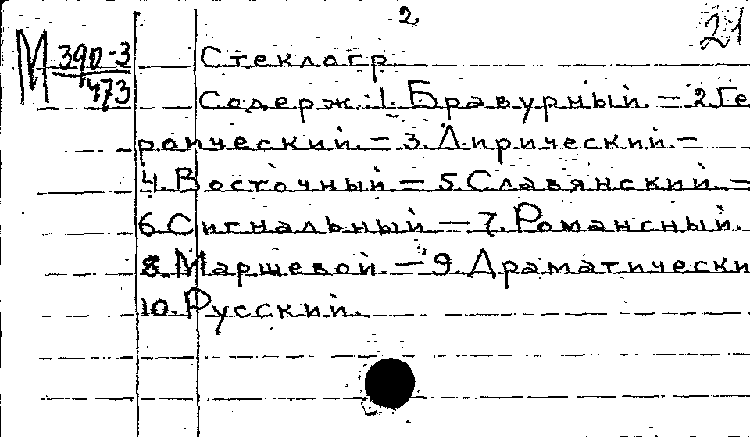 2
21
М 390-3
473
Стеклогр.
Содерж.: 1. Бравурный. – 2. Ге
роический. – 3. Лирический. –
4. Восточный – 5. Славянский. –
6. Сигнальный – 7. Романсный.
8. Маршевой. – 9. Драматически
10. Русский.